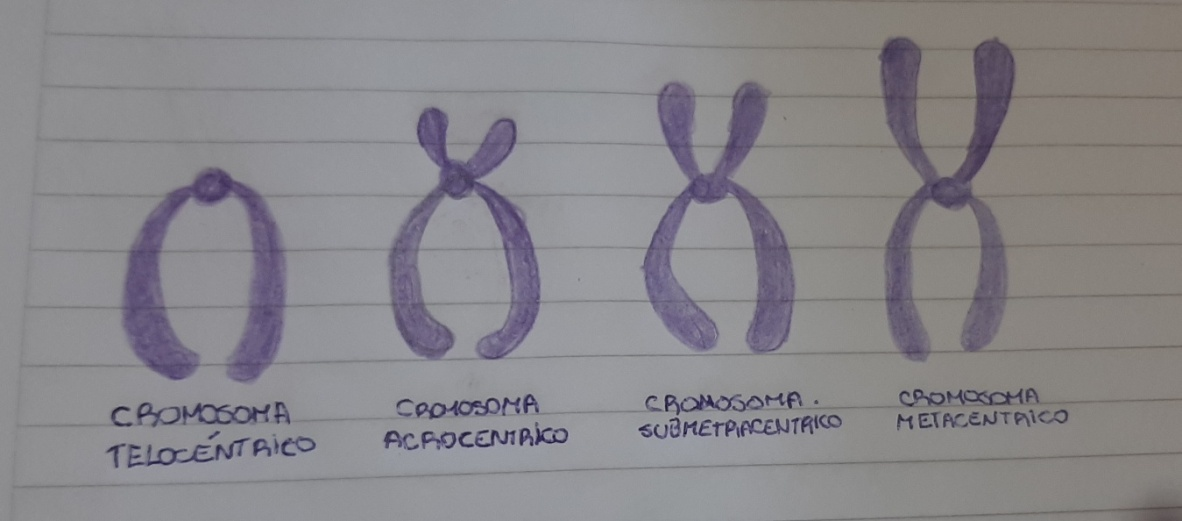 CROMOSOMA
TELOCÉNTRICO
CROMOSOMA
ACROCENTRICO
CROMOSOMA.
SUBMETRACENTRICO
CROMOSOMA
METACENTRICO